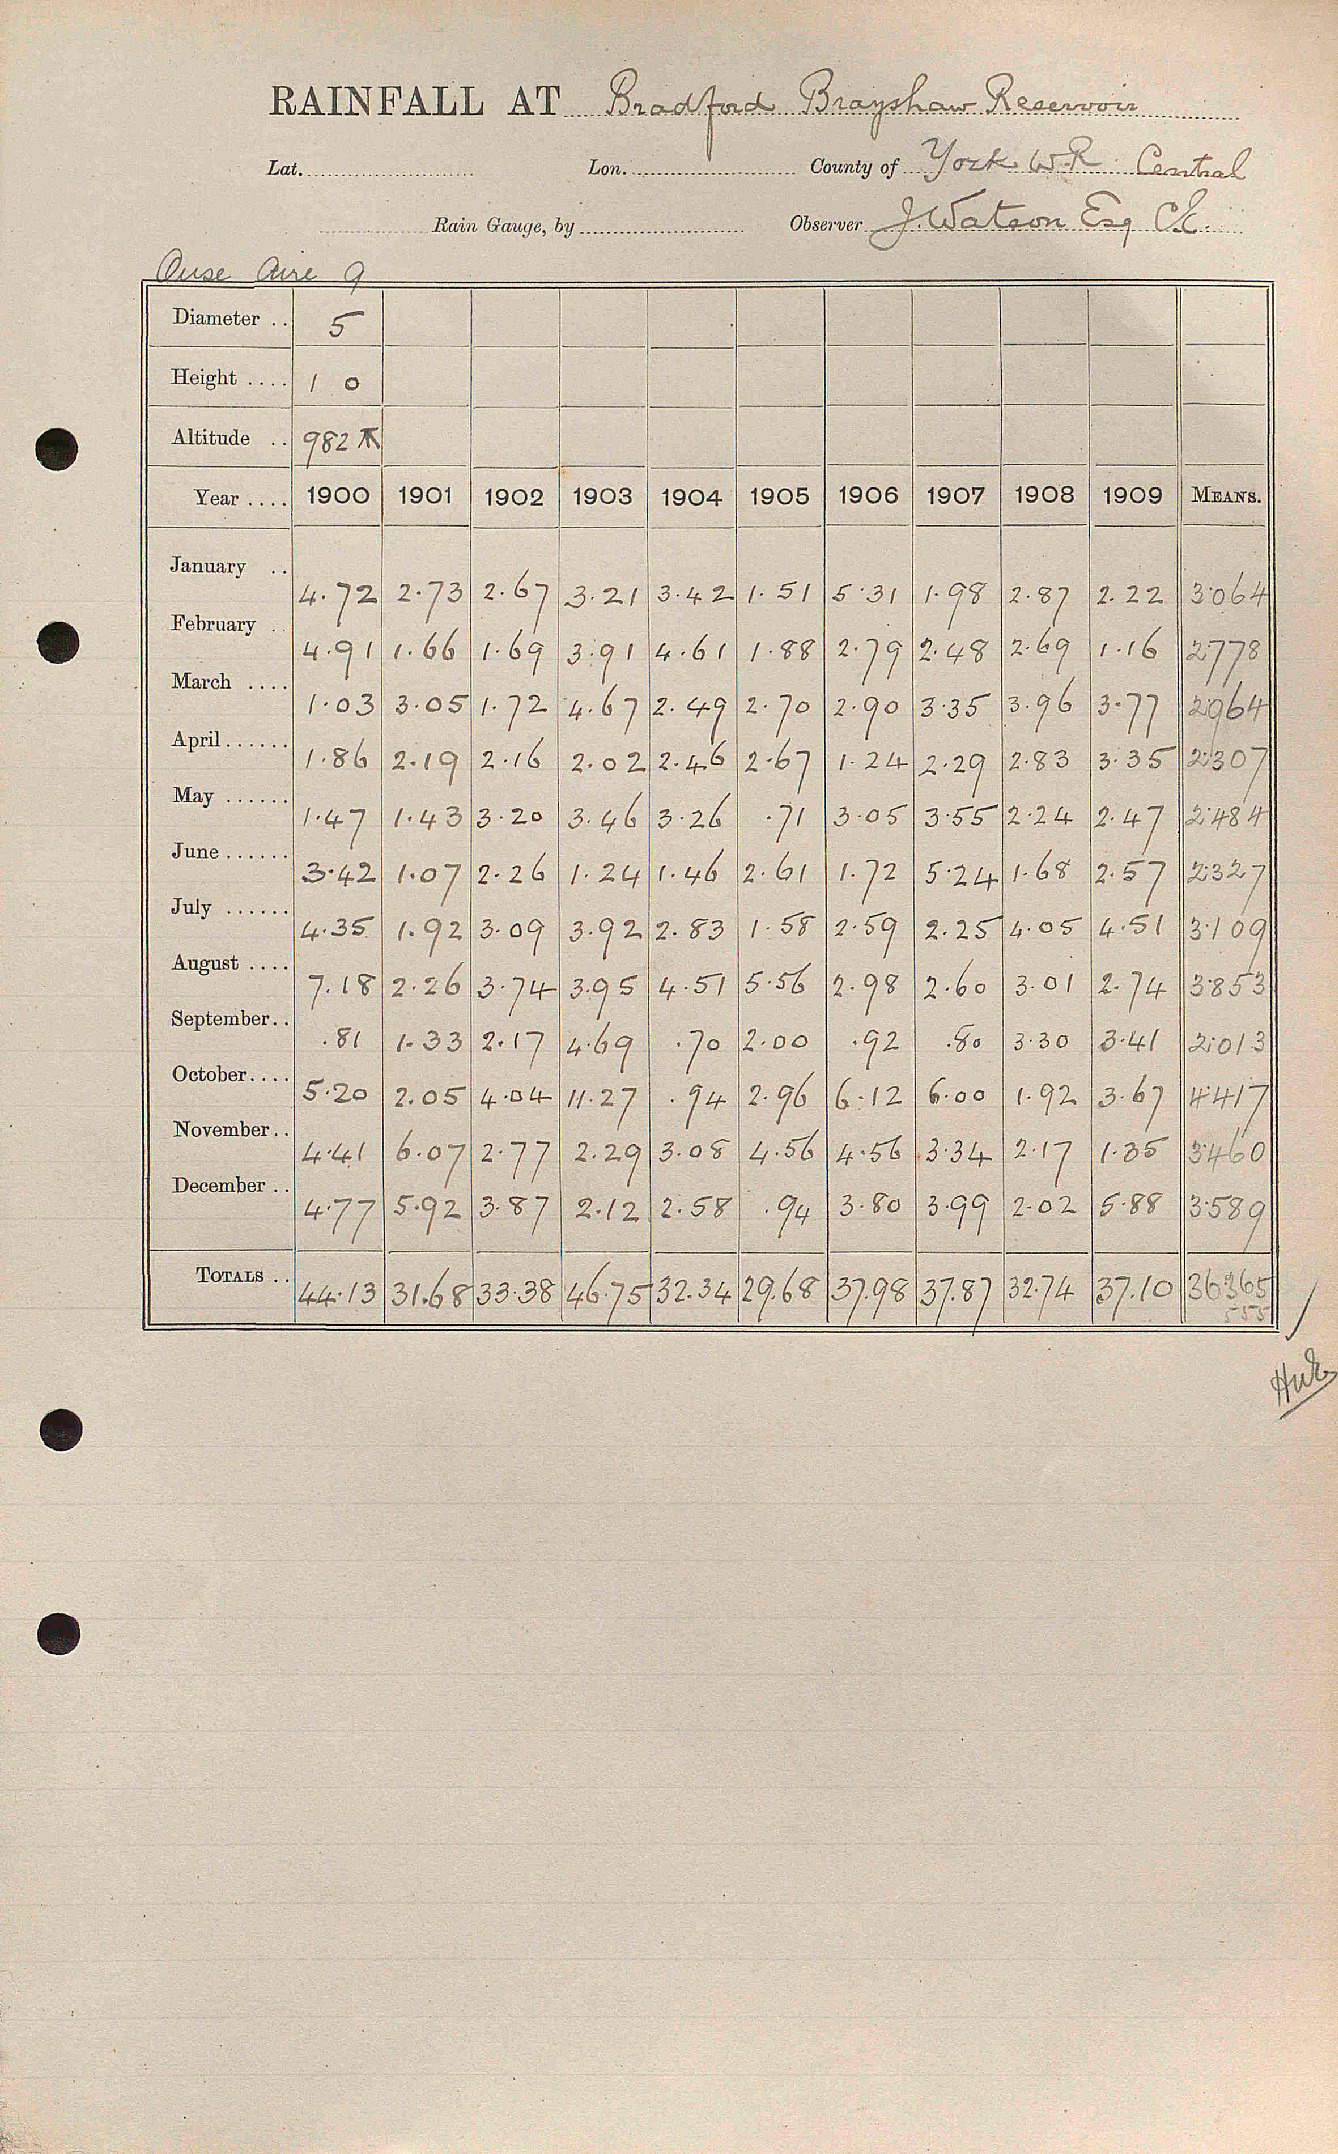 RAINFALL AT Bradford Brayshaw Reservoir
Lat. Lon. County of York W.R. Central
Rain Gauge, by Observer J. Watson Esq C.E.
Ouse Aire 9
Diameter .. 5
Height .... 1 0
Altitude .. 982
Year .... 1900 1901 1902 1903 1904 1905 1906 1907 1908 1909 MEANS.
January .. 4.72 2.73 2.67 3.21 3.42 1.51 5.31 1.98 2.87 2.22 3.064
February .. 4.91 1.66 1.69 3.91 4.61 1.88 2.79 2.48 2.69 1.16 2778
March .... 1.03 3.05 1.72 4.67 2.49 2.70 2.90 3.35 3.96 3.77 2964
April ...... 1.86 2.19 2.16 2.02 2.46 2.67 1.24 2.29 2.83 3.35 2.307
May ...... 1.47 1.43 3.20 3.46 3.26 .71 3.05 3.55 2.24 2.47 2.484
June ...... 3.42 1.07 2.26 1.24 1.46 2.61 1.72 5.24 1.68 2.57 2327
July ...... 4.35 1.92 3.09 3.92 2.83 1.58 2.59 2.25 4.05 4.51 3.109
August .... 7.18 2.26 3.74 3.95 4.51 5.56 2.98 2.60 3.01 2.74 3853
September.. .81 1.33 2.17 4.69 .70 2.00 .92 .80 3.30 3.41 2.013
October.... 5.20 2.05 4.04 11.27 .94 2.96 6.12 6.00 1.92 3.67 4.417
November.. 4.41 6.07 2.77 2.29 3.08 4.56 4.56 3.34 2.17 1.35 3460
December .. 4.77 5.92 3.87 2.12 2.58 .94 3.80 3.99 2.02 5.88 3.589
TOTALS .. 44.13 31.68 33.38 46.75 32.34 29.68 37.98 37.87 32.74 37.10 36365
555